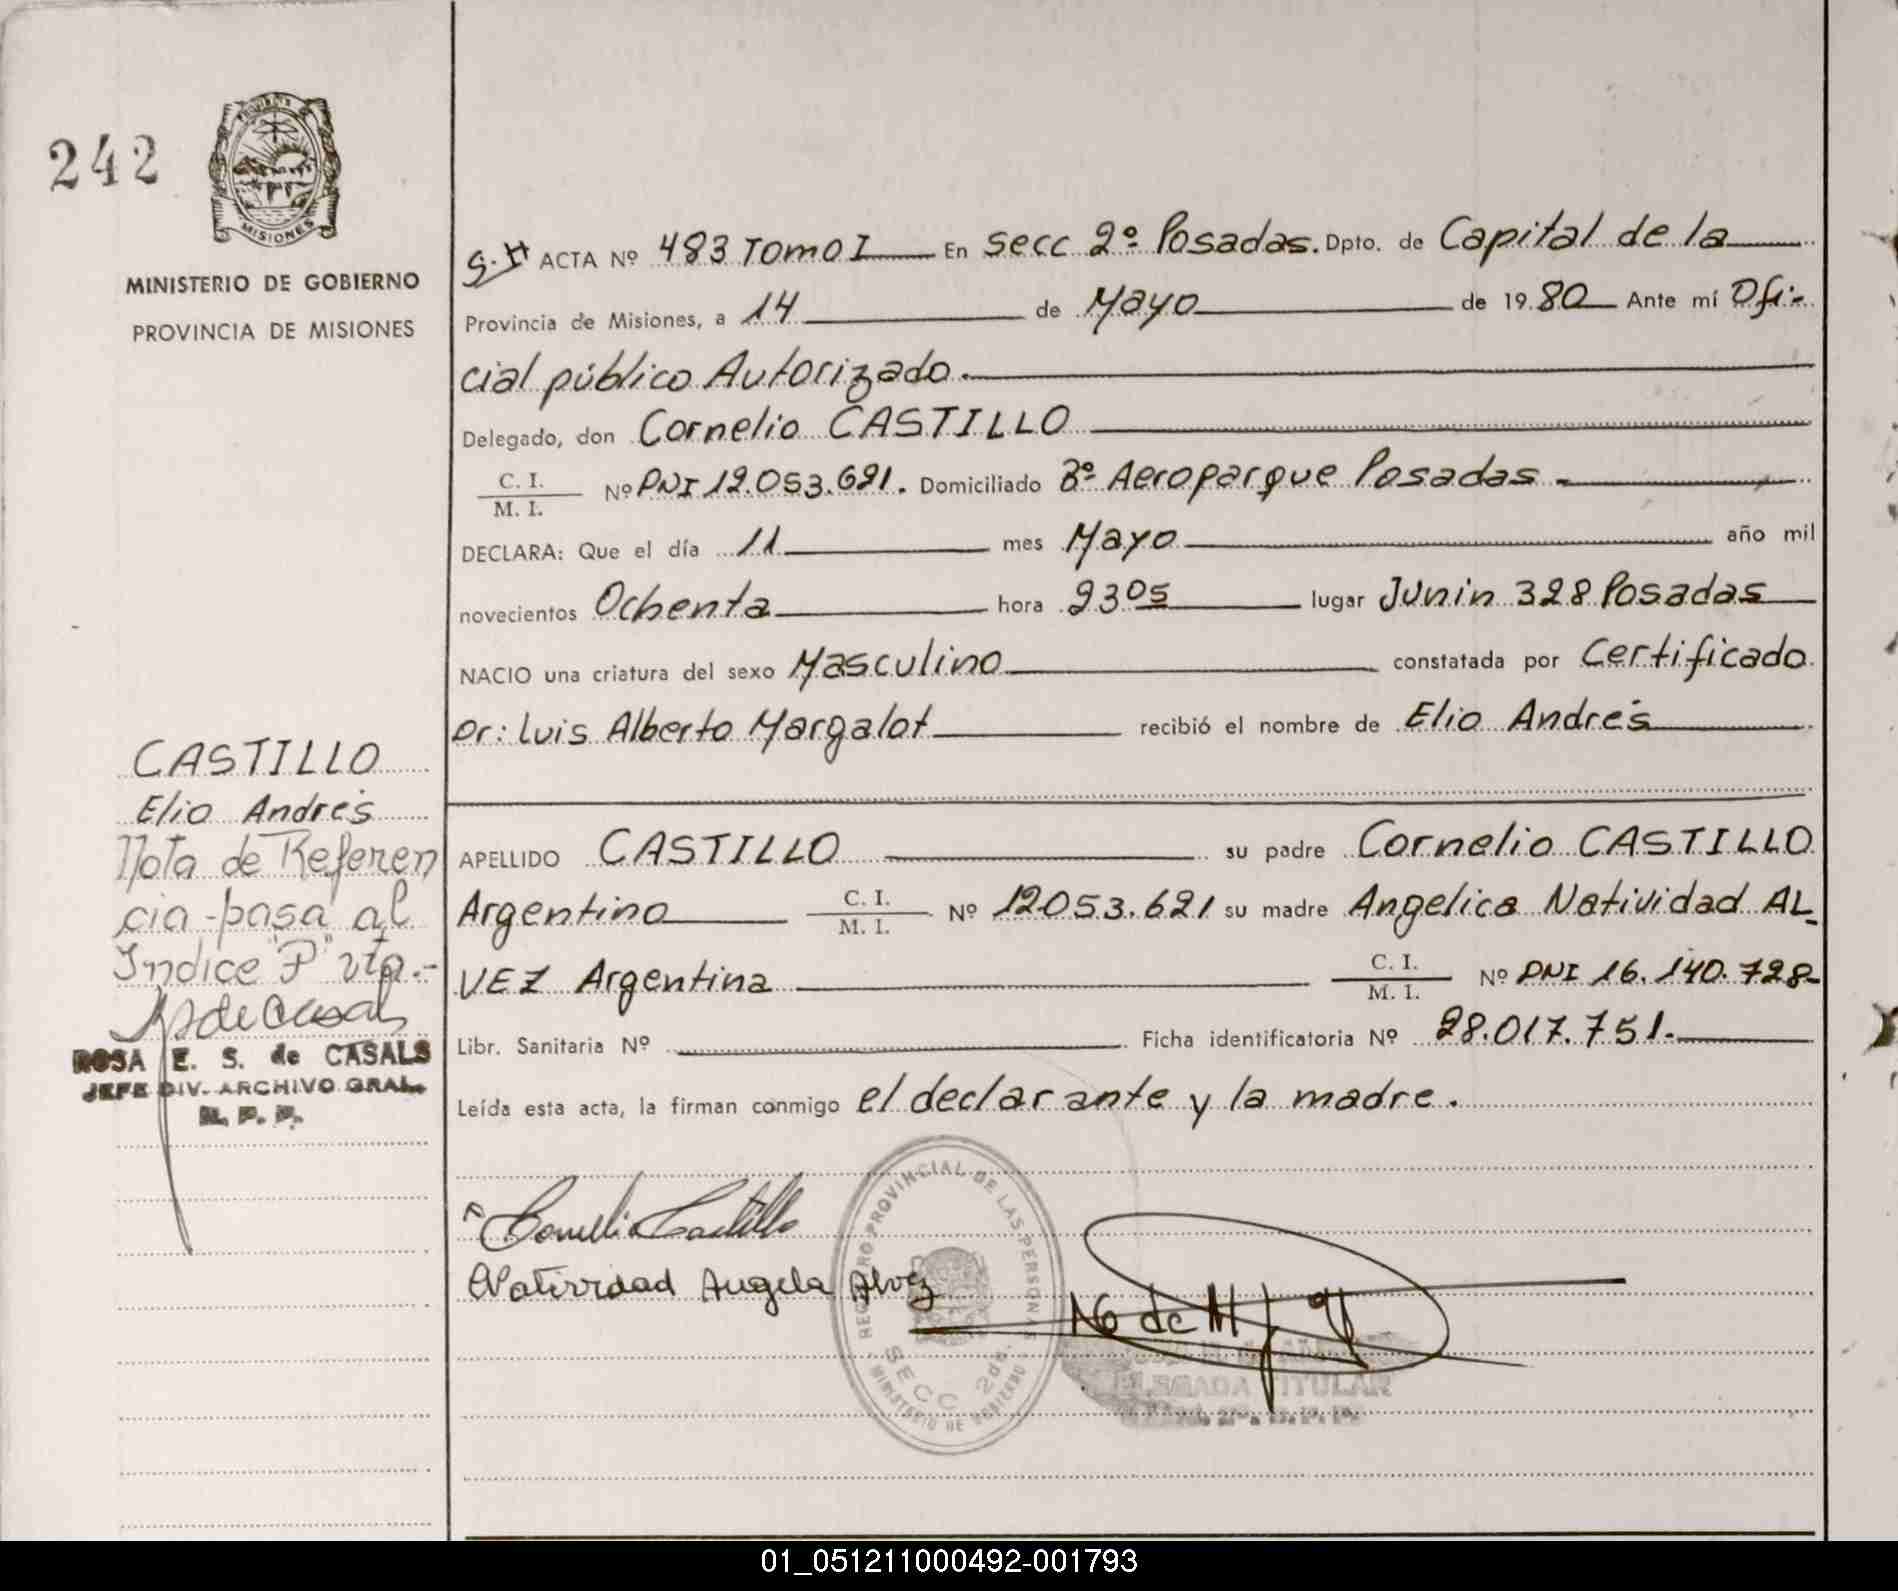 242
PROVINCIA DE
MISIONES
MINISTERIO DE GOBIERNO
PROVINCIA DE MISIONES
S.H ACTA Nº 483 Tomo I En Secc 2º Posadas. Dpto. de Capital de la
Provincia de Misiones, a 14 de Mayo de 1980 Ante mí Ofi-
cial público Autorizado.
Delegado, don Cornelio CASTILLO
C. I.
M. I.
Nº DNI 12.053.621. Domiciliado Bº Aeroparque Posadas.
DECLARA: Que el día 11 mes Mayo año mil
novecientos Ochenta hora 2305 lugar Junin 328 Posadas
NACIO una criatura del sexo Masculino constatada por Certificado
Dr: Luis Alberto Margalot recibió el nombre de Elio Andrés
CASTILLO
Elio Andrés
Nota de Referen
cia-pasa al
Indice "P" vta.-
ROSA E. S. de CASALS
JEFE DIV. ARCHIVO GRAL.
R. P. P.
APELLIDO CASTILLO su padre Cornelio CASTILLO
Argentino C. I. Nº 12053.621 su madre Angelica Natividad AL-
M. I.
VEZ Argentina C. I. Nº DNI 16.140.728-
M. I.
Libr. Sanitaria Nº Ficha identificatoria Nº 28.017.751.
Leída esta acta, la firman conmigo el declarante y la madre.
Cornelio Castillo
Natividad Angela Alvez
REGISTRO PROVINCIAL DE LAS PERSONAS
SECC 2da.
MINISTERIO DE GOBIERNO
DELEGADA TITULAR
01_051211000492-001793